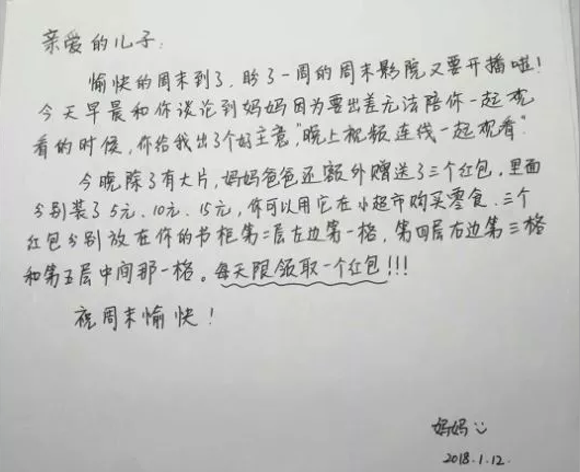 亲爱的儿子：
愉快的周末到了，盼了一周的周末影院又要开播啦！
今天早晨和你谈论到妈妈因为要出差无法陪你一起观
看的时候，你给我出了个好主意，"晚上视频连线一起观看"
今晚除了有大片，妈妈爸爸还额外赠送了三个红包，里面
分别装了5元、10元、15元，你可以用它在小超市购买零食。三个
红包分别放在你的书柜第二层左边第一格，第四层右边第三格
和第五层中间那一格。每天限领取一个红包！！！
祝周末愉快！
妈妈
2018.1.12.